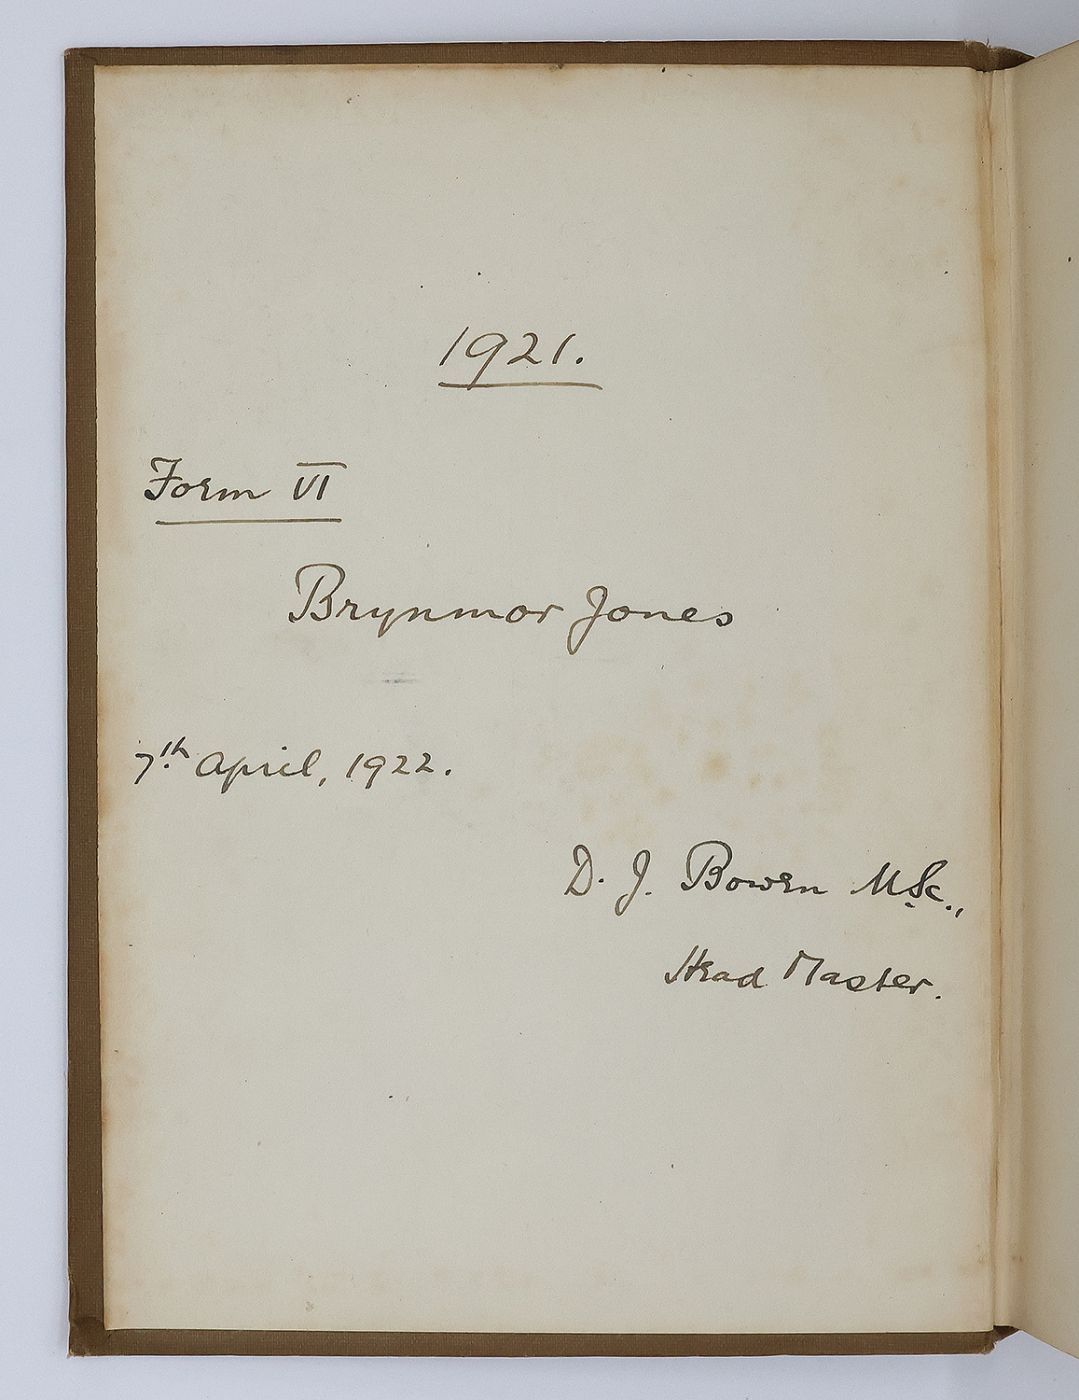 1921.
Form VI
Brynmor Jones
7th April, 1922.
D. J. Bowen M.Sc.,
Head Master.